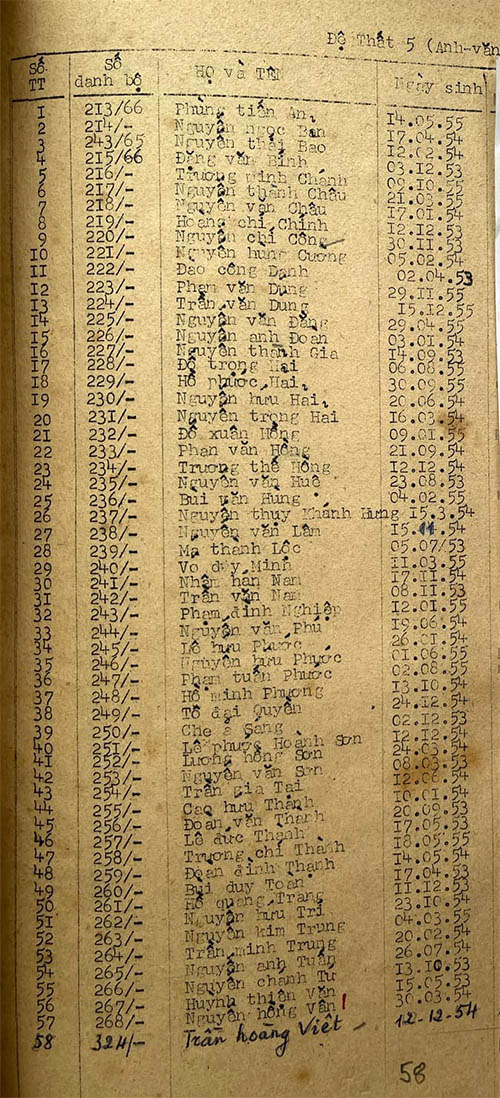 Đệ Thất 5 (Anh-văn
Số TT Số danh bộ HỌ và TÊN Ngày sinh
1 213/66 Phùng tiến An 14.05.55
2 214/- Nguyễn ngọc Ban 17.04.54
3 243/65 Nguyễn thái Bao 12.02.54
4 215/66 Đặng văn Bình 03.12.53
5 216/- Trương minh Chánh 09.10.55
6 217/- Nguyễn thành Châu 21.03.55
7 218/- Nguyễn văn Châu 17.01.54
8 219/- Hoàng chí Chính 12.12.53
9 220/- Nguyễn chí Công 30.11.53
10 221/- Nguyễn hùng Cương 05.02.54
11 222/- Đào công Danh 02.04.53
12 223/- Phạm văn Dung 29.11.55
13 224/- Trần văn Dung 15.12.55
14 225/- Nguyễn văn Đăng 29.04.55
15 226/- Nguyễn anh Đoan 03.01.54
16 227/- Nguyễn thành Gia 14.09.53
17 228/- Đỗ trọng Hai 06.08.55
18 229/- Hồ phước Hai 30.09.55
19 230/- Nguyễn hưu Hai 20.06.54
20 231/- Nguyễn trọng Hai 16.03.54
21 232/- Đỗ xuân Hồng 09.01.55
22 233/- Phan văn Hồng 21.09.54
23 234/- Trương thế Hồng 12.12.54
24 235/- Nguyễn văn Huê 23.08.54
25 236/- Bui văn Hung 04.02.55
26 237/- Nguyễn thụy Khánh Hưng 15.3.54
27 238/- Nguyễn văn Lâm 15.11.54
28 239/- Mạ thanh Lộc 05.07/53
29 240/- Vo duy Minh 11.03.55
30 241/- Nhâm hàn Nam 17.11.54
31 242/- Trần văn Nam 08.11.53
32 243/- Phạm đình Nghiệp 12.01.55
33 244/- Nguyễn văn Phú 19.06.54
34 245/- Lê hưu Phước 26.01.54
35 246/- Nguyễn hưu Phước 01.06.55
36 247/- Phạm tuấn Phước 02.08.55
37 248/- Hồ minh Phương 13.10.54
38 249/- Tô đại Quyền 24.12.54
39 250/- Che a Sang 02.12.53
40 251/- Lê phượng Hoành Sơn 12.12.54
41 252/- Lương hồng Sơn 24.03.54
42 253/- Nguyễn văn Sơn 08.03.53
43 254/- Trần gia Tai 12.06.54
44 255/- Cao hưu Thành 10.01.54
45 256/- Đoan văn Thanh 20.09.53
46 257/- Lê đức Thạnh 17.05.53
47 258/- Trương chí Thành 18.05.55
48 259/- Đoan đình Thạnh 14.05.54
49 260/- Bui duy Toan 17.04.53
50 261/- Hồ quang Trang 11.12.53
51 262/- Nguyễn hưu Tri 23.10.54
52 263/- Nguyễn kim Trung 04.03.55
53 264/- Trần minh Trung 20.02.54
54 265/- Nguyễn anh Tuấn 26.07.54
55 266/- Nguyễn chanh Tư 13.10.53
56 267/- Huỳnh thiện Văn 15.05.53
57 268/- Nguyễn hồng Vân 30.03.54
58 324/- Trần hoàng Việt 12-12-54
58